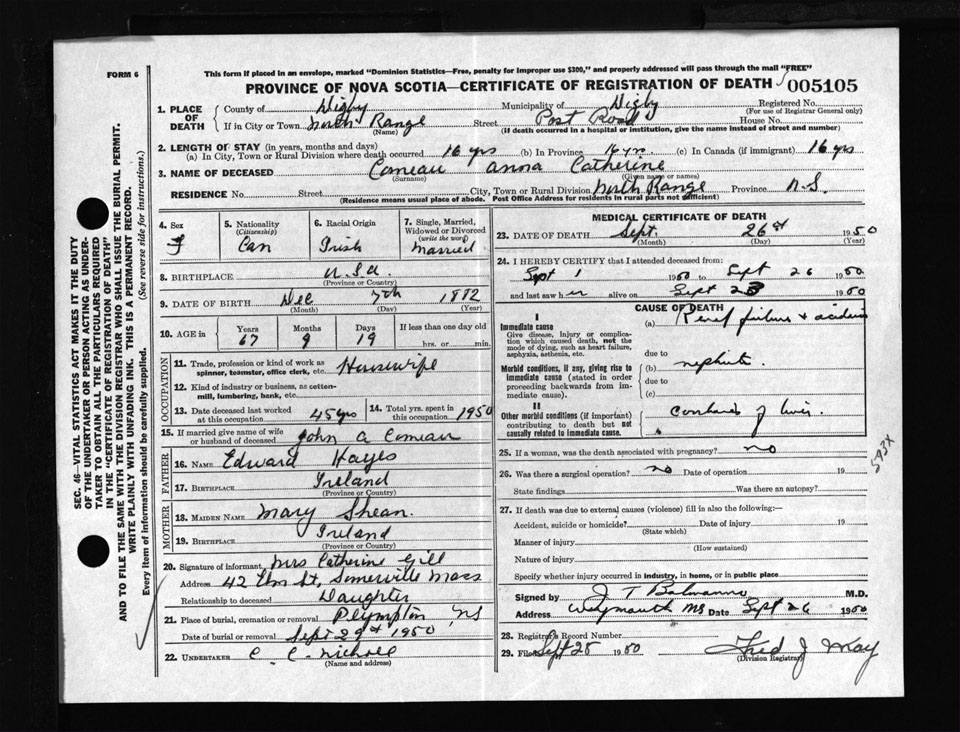 FORM 6
This form if placed in an envelope, marked "Dominion Statistics—Free, penalty for improper use $300," and properly addressed will pass through the mail "FREE"
PROVINCE OF NOVA SCOTIA—CERTIFICATE OF REGISTRATION OF DEATH 005105
1. PLACE OF DEATH
County of Digby Municipality of Digby Registered No.
(For use of Registrar General only)
If in City or Town North Range Street Post Road House No.
(Name) (If death occurred in a hospital or institution, give the name instead of street and number)
2. LENGTH OF STAY (in years, months and days)
(a) In City, Town or Rural Division where death occurred 16 yrs (b) In Province 16 yrs. (c) In Canada (if immigrant) 16 yrs
3. NAME OF DECEASED Comeau Anna Catherine
(Surname) (Given name or names)
RESIDENCE No. Street City, Town or Rural Division North Range Province N.S.
(Residence means usual place of abode. Post Office Address for residents in rural parts not sufficient)
4. Sex F
5. Nationality (Citizenship) Can
6. Racial Origin Irish
7. Single, Married, Widowed or Divorced (write the word) Married
8. BIRTHPLACE U.S.A.
(Province or Country)
9. DATE OF BIRTH Dec 7th 1882
(Month) (Day) (Year)
10. AGE in Years Months Days If less than one day old
67 9 19 hrs. or min.
OCCUPATION
11. Trade, profession or kind of work as spinner, teamster, office clerk, etc. Housewife
12. Kind of industry or business, as cotten-mill, lumbering, bank, etc.
13. Date deceased last worked at this occupation 45 yrs
14. Total yrs. spent in this occupation 1950
15. If married give name of wife or husband of deceased John A Comeau
FATHER
16. NAME Edward Hayes
17. BIRTHPLACE Ireland
(Province or Country)
MOTHER
18. MAIDEN NAME Mary Shean.
19. BIRTHPLACE Ireland
(Province or Country)
20. Signature of informant Mrs Catherine Gill
Address 42 Elm St, Somerville Mass
Relationship to deceased Daughter
21. Place of burial, cremation or removal Plympton NS
Date of burial or removal Sept 29th 1950
22. UNDERTAKER C. C. Nicholl
(Name and address)
MEDICAL CERTIFICATE OF DEATH
23. DATE OF DEATH Sept. 26 1950
(Month) (Day) (Year)
24. I HEREBY CERTIFY that I attended deceased from:
Sept 1 1950 to Sept 26 1950
and last saw her alive on Sept 23 1950
CAUSE OF DEATH
I
Immediate cause
Give disease, injury or complication which caused death, not the mode of dying, such as heart failure, asphyxia, asthenia, etc.
(a) failure +
due to
Morbid conditions, if any, giving rise to immediate cause (stated in order proceeding backwards from immediate cause).
(b) nephritis.
due to
(c)
II
Other morbid conditions (if important) contributing to death but not causally related to immediate cause.
25. If a woman, was the death associated with pregnancy? no
593X
26. Was there a surgical operation? no Date of operation 19
State findings Was there an autopsy?
27. If death was due to external causes (violence) fill in also the following:—
Accident, suicide or homicide? Date of injury 19
(State which)
Manner of injury
(How sustained)
Nature of injury
Specify whether injury occurred in industry, in home, or in public place
Signed by J T M.D.
Address Weymouth NS Date Sept 26 1950
28. Registrar's Record Number
29. Filed Sept 28 1950 Fred J May
(Division Registrar)
SEC. 46—VITAL STATISTICS ACT MAKES IT THE DUTY
OF THE UNDERTAKER OR PERSON ACTING AS UNDERTAKER TO OBTAIN ALL THE PARTICULARS REQUIRED
IN THE "CERTIFICATE OF REGISTRATION OF DEATH"
AND TO FILE THE SAME WITH THE DIVISION REGISTRAR WHO SHALL ISSUE THE BURIAL PERMIT.
WRITE PLAINLY WITH UNFADING INK. THIS IS A PERMANENT RECORD.
Every item of information should be carefully supplied. (See reverse side for instructions.)